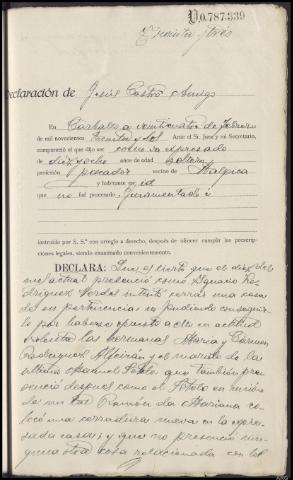 D.0.787.339
Treinta y tres
Declaración de Jesús Castro Amigo
En Carballo a veinticuatro de Febrero
de mil novecientos treinta y dos Ante el Sr. Juez y mi Secretario,
compareció el que dijo ser como va expresado
de diez y ocho años de edad soltero
profesión pescador vecino de Malpica
y habitante en id
que no fué procesado. Juramentado é
instruído por S. S.ª con arreglo a derecho, después de ofrecer cumplir las prescrip-
ciones legales, siendo examinado convenientemente.
DECLARA: Que es cierto que el diez del
mes actual presenció como Ignacio Ro
dríguez Verdes intentó cerrar una casa
de su pertenencia no pudiendo conseguir
lo por haberse opuesto a ello en actitud
las hermanas María y Carmen
Rodríguez Alfeirán y el marido de la
última Manuel Fotelo que también pre
senció después como el Fotelo en unión
de un tal Ramón da Mariana co
locó una cerradura nueva en la expre
sada casa; y que no presenció nin
guna otra cosa relacionada con el